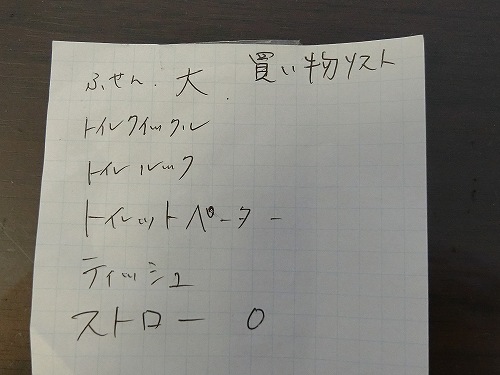 買い物リスト
ふせん. 大.
トイレクイックル
トイレルック
トイレットペーター
ティッシュ
ストロー 0